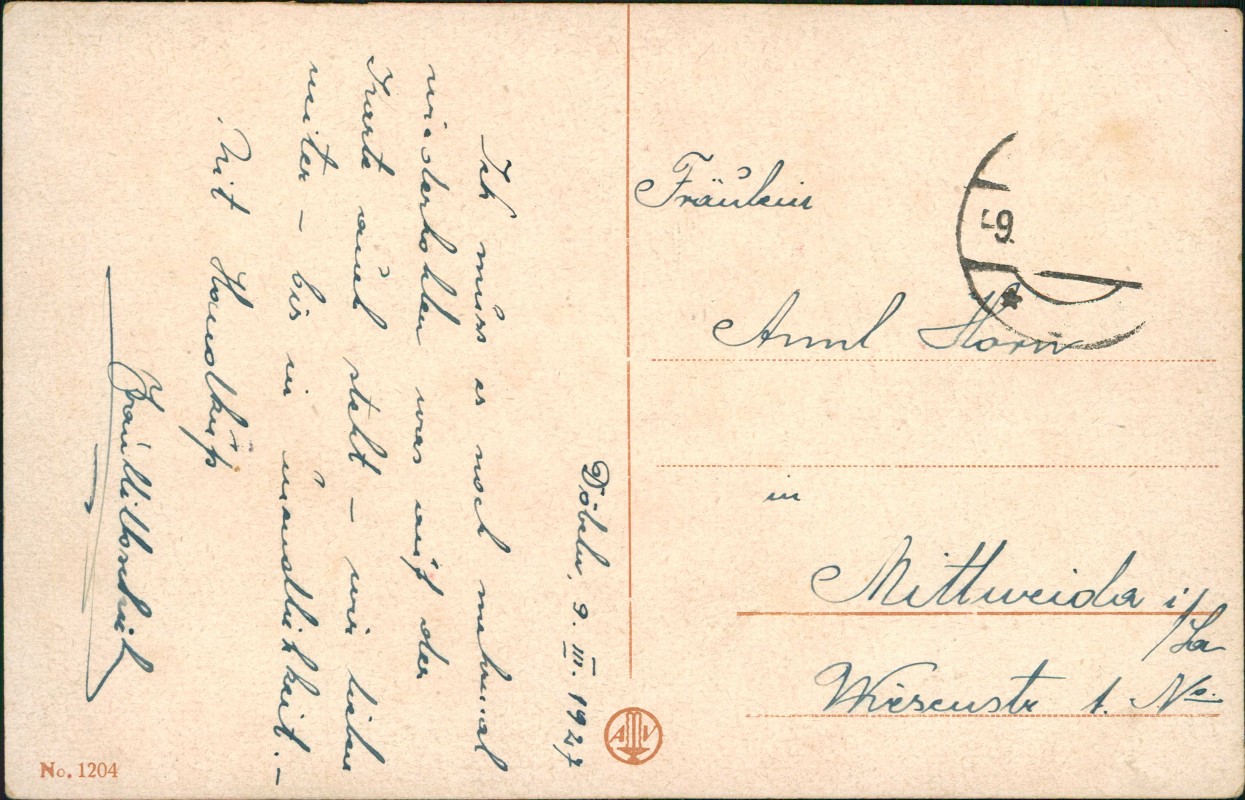 Döbeln, 9. III. 1927
Ich muss es noch mehrmal
wiederholen was auf der
Karte auch steht – wir lieben
weiter – bis in
Mit Handkuß
Fräulein
Horn
in
Mittweida i/Sa
Wiesenstr 1. No.
-9.
AMV
No. 1204